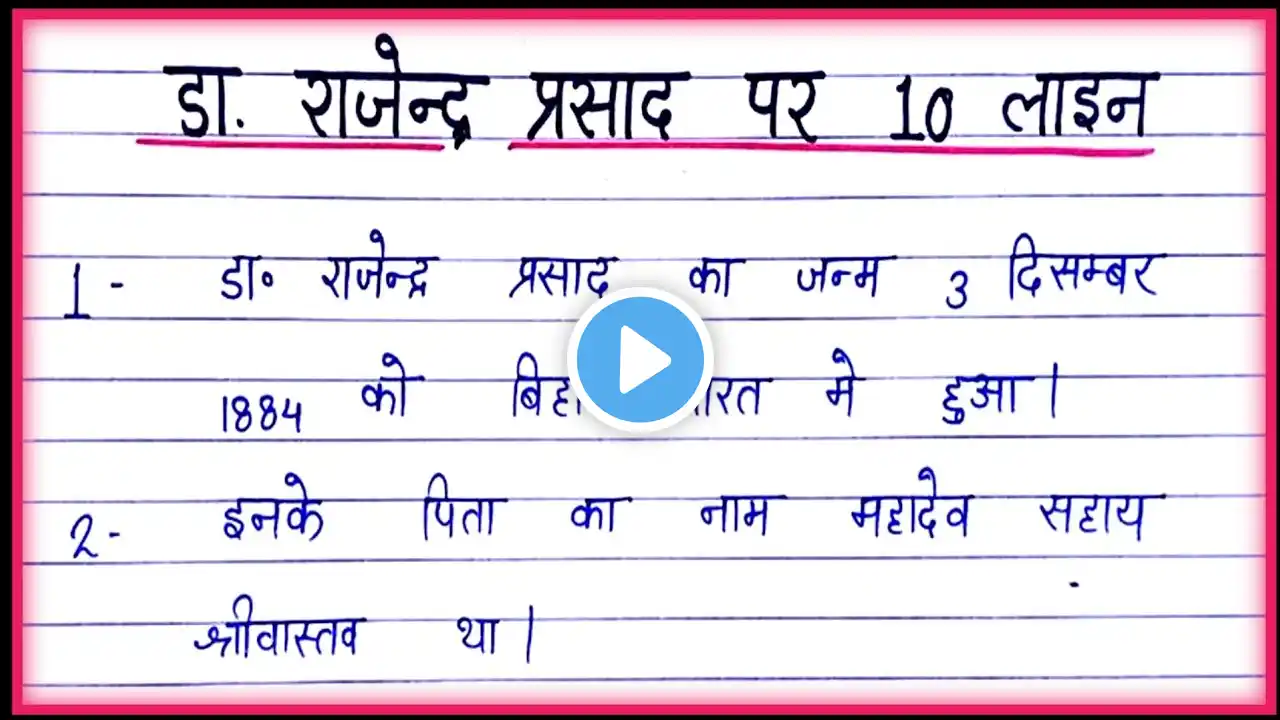 डा. राजेन्द्र प्रसाद पर 10 लाइन
1- डा॰ राजेन्द्र प्रसाद का जन्म 3 दिसम्बर
1884 को मे हुआ।
2- इनके पिता का नाम महादेव सहाय
श्रीवास्तव था।